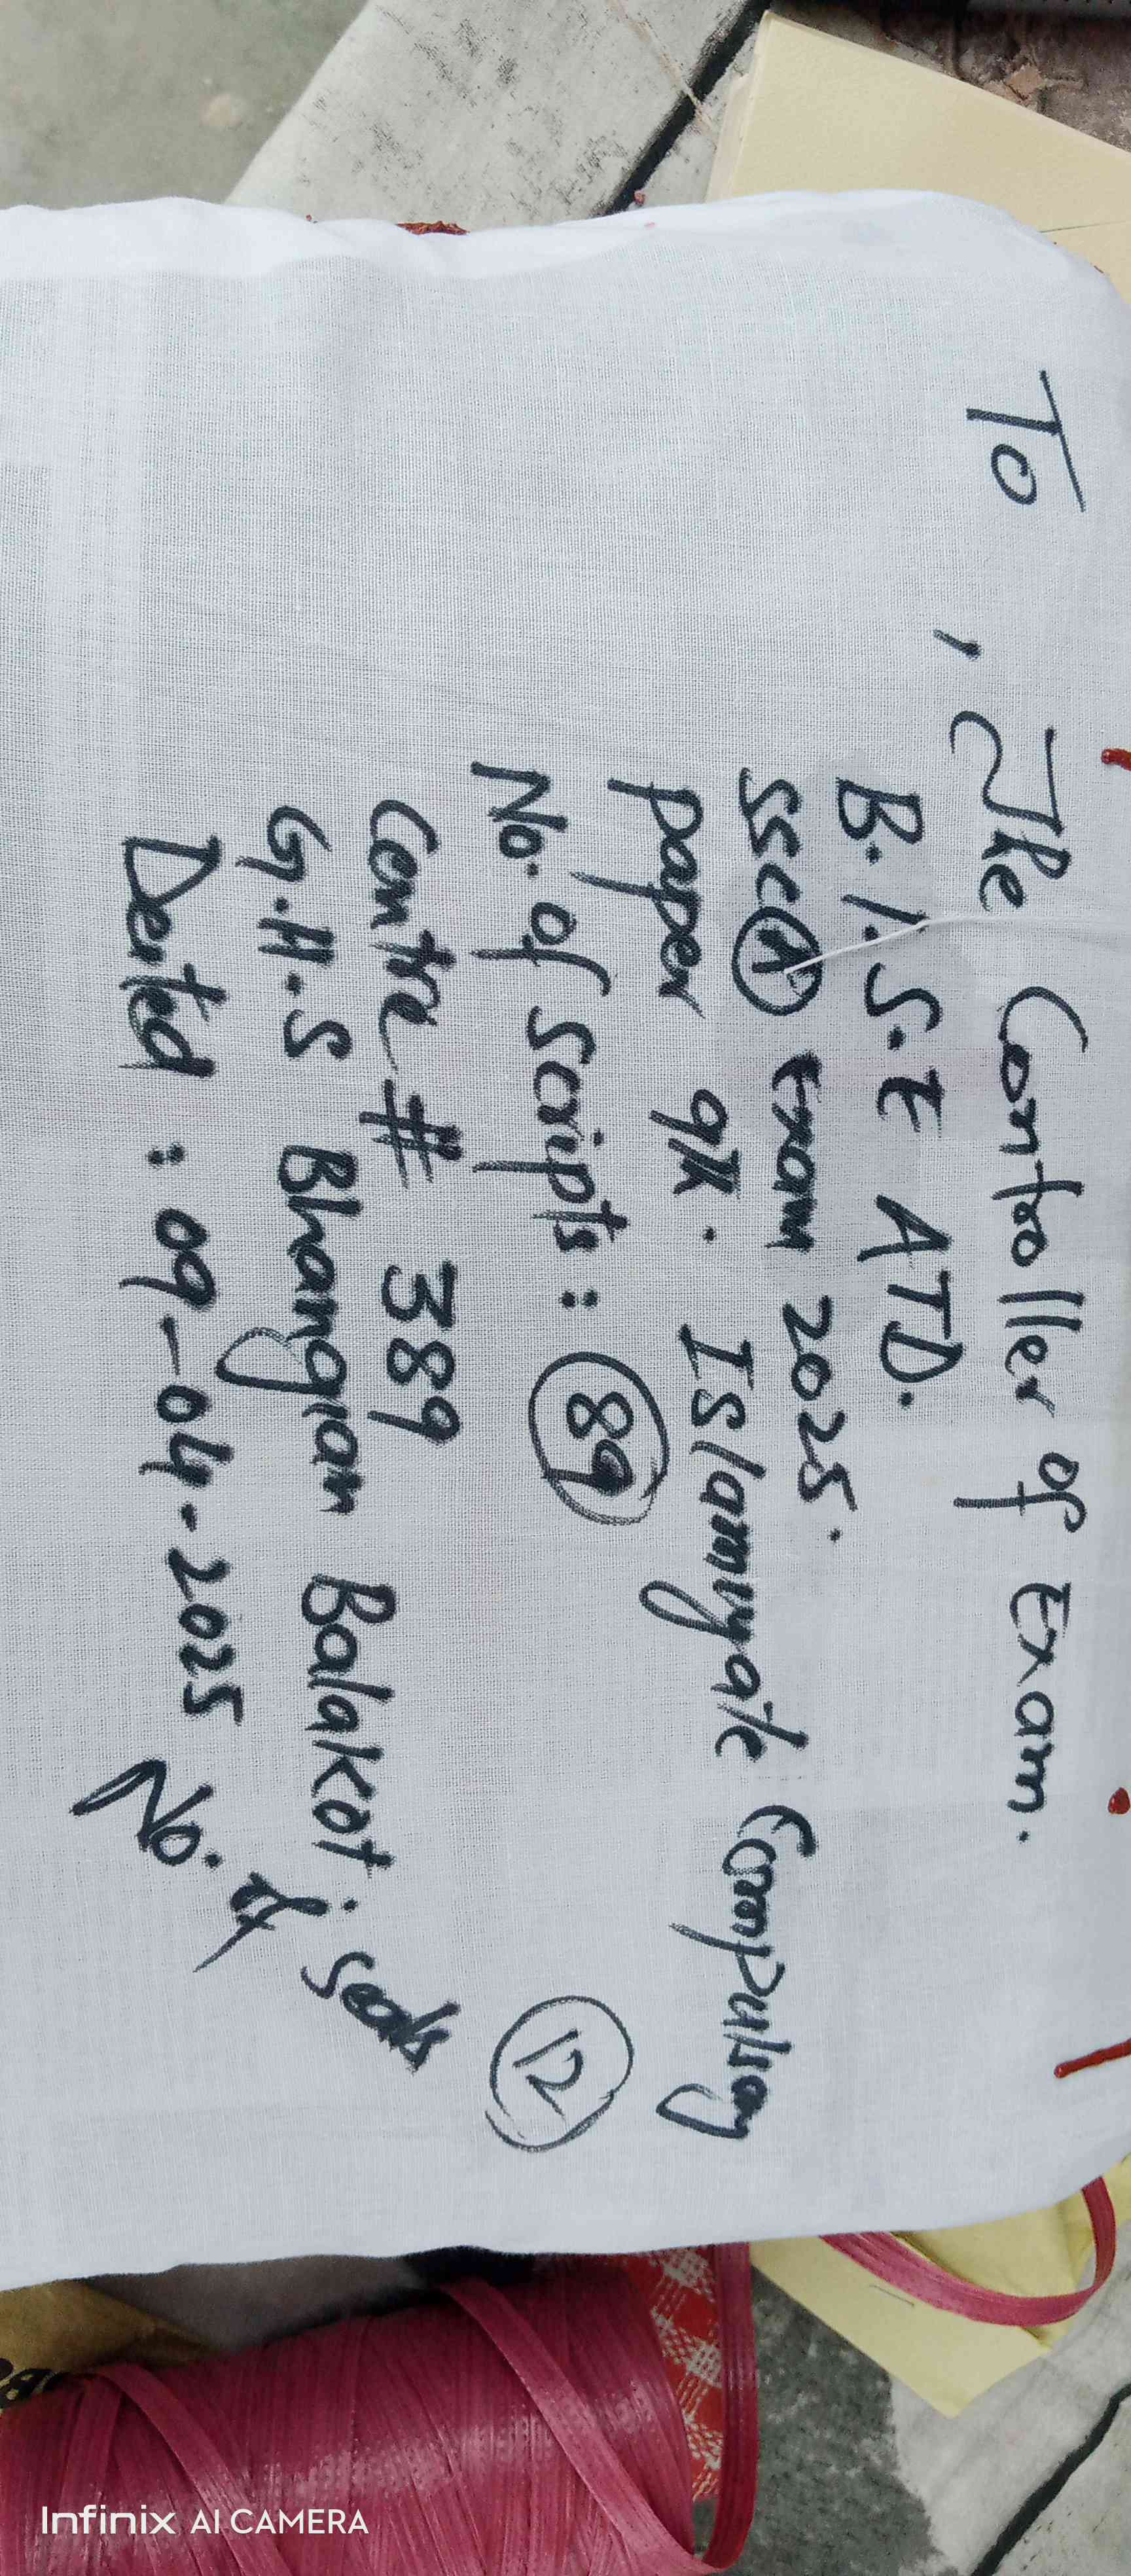 To, The Controller of Exam.
B.I.S.E ATD.
SSC(A) Exam 2025.
Paper 9th. Islamiyate Compulsay
No. of scripts: 89
Centre # 389
G.H.S Bhangian Balakot.
Dented: 09-04-2025
No. of seals
12
Infinix AI CAMERA